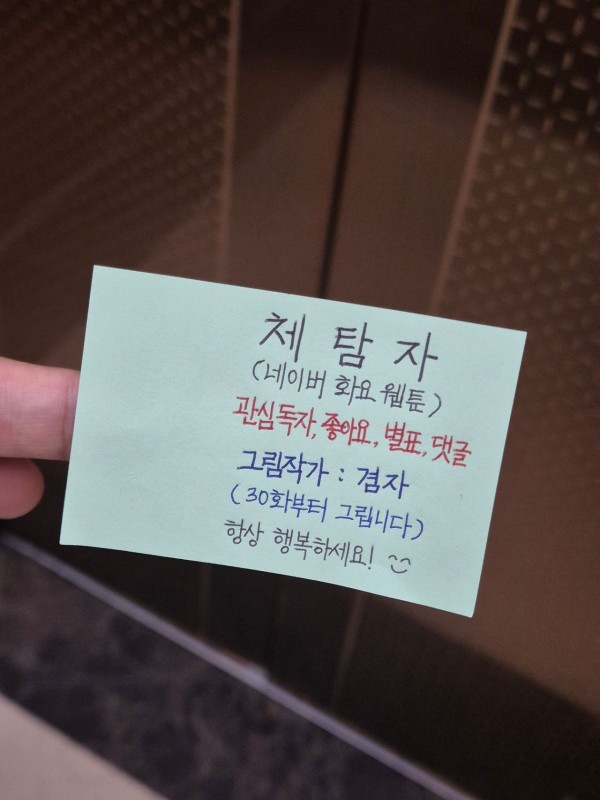 체탐자
(네이버 화요 웹툰)
관심독자, 좋아요, 별표, 댓글
그림작가 : 겸자
(30화부터 그립니다)
항상 행복하세요!